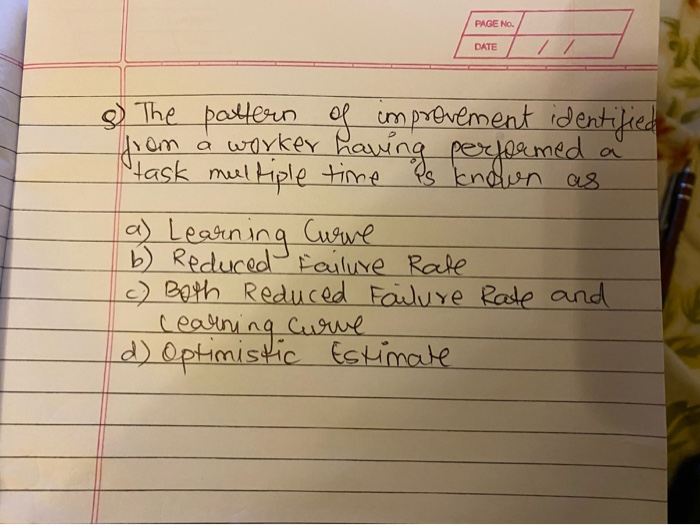 PAGE No.
DATE / /
Q) The pattern of improvement identified
from a worker having performed a
task multiple time is known as
a) Learning Curve
b) Reduced Failure Rate
c) Both Reduced Failure Rate and
Learning curve
d) Optimistic Estimate